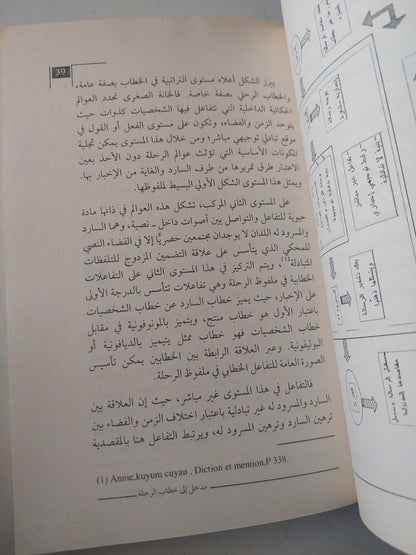 39
يبرز الشكل أعلاه مستوى التراتبية في الخطاب بصفة عامة،
والخطاب الرحلي بصفة خاصة. فالخانة الصغرى تحدد العوالم
الحكائية الداخلية التي تتفاعل فيها الشخصيات كذوات حيث
يتوحد الزمن والفضاء، وتكون على مستوى الفعل أو القول في
موقع تبادلي توجيهي مباشر؛ ومن خلال هذا المستوى يمكن تجلية
المكونات الأساسية التي تؤثث عوالم الرحلة دون الأخذ بعين
الاعتبار طرق تمريرها من طرف السارد والغاية من الإخبار بها.
ويمثل هذا المستوى الشكل الأولي البسيط لملفوظها.
على المستوى الثاني المركب، تشكل هذه العوالم في ذاتها مادة
حيوية للتفاعل والتواصل بين أصوات داخل ـ نصية، وهما السارد
والمسرود له اللذان لا يوجدان مجتمعين حصريًّا إلا في الفضاء النصي
للمحكي الذي يتأسس على علاقة التضمين المزدوج للتلفظات
المتبادلة(1)، ويتم التركيز في هذا المستوى الثاني على التفاعلات
الخطابية في ملفوظ الرحلة وهي تفاعلات تتأسس بالدرجة الأولى
على الإخبار، حيث يميز خطاب السارد عن خطاب الشخصيات
باعتبار الأول هو خطاب منتج، ويتميز بالمونوفونية في مقابل
خطاب الشخصيات فهو خطاب ممثل يتيميز بالديافونية أو
البوليفونية. وعبر العلاقة الرابطة بين الخطابين يمكن تأسيس
الصورة العامة للتفاعل الخطابي في ملفوظ الرحلة.
فالتفاعل في هذا المستوى غير مباشر، حيث إن العلاقة بين
السارد والمسرود له غير تبادلية باعتبار اختلاف الزمن والفضاء بين
ترهين السارد وترهين المسرود له، ويرتبط التفاعل هنا بالمقصدية
(1) Annie.kuyum cuyan . Diction et mention.P 338.
مدخل إلى خطاب الرحلة